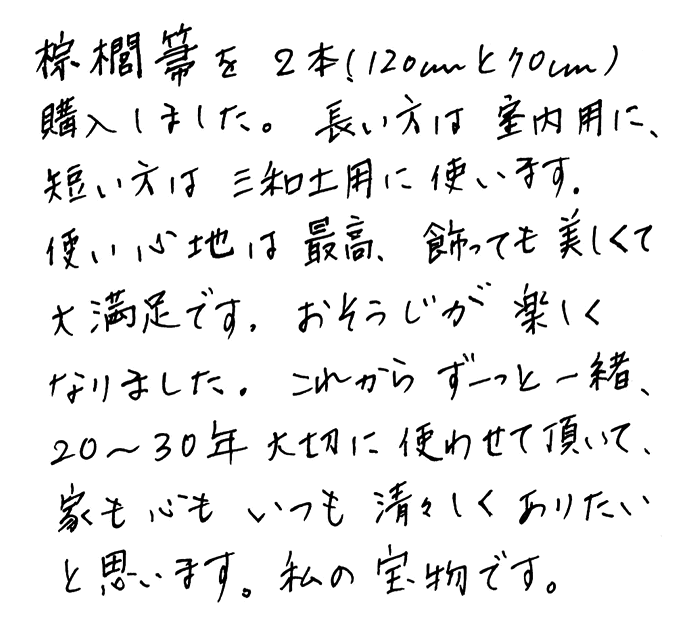 棕櫚箒を2本(120cmと70cm)
購入しました。長い方は室内用に、
短い方は三和土用に使います。
使い心地は最高、飾っても美しくて
大満足です。おそうじが楽しく
なりました。これからずーっと一緒、
20〜30年大切に使わせて頂いて、
家も心もいつも清々しくありたい
と思います。私の宝物です。